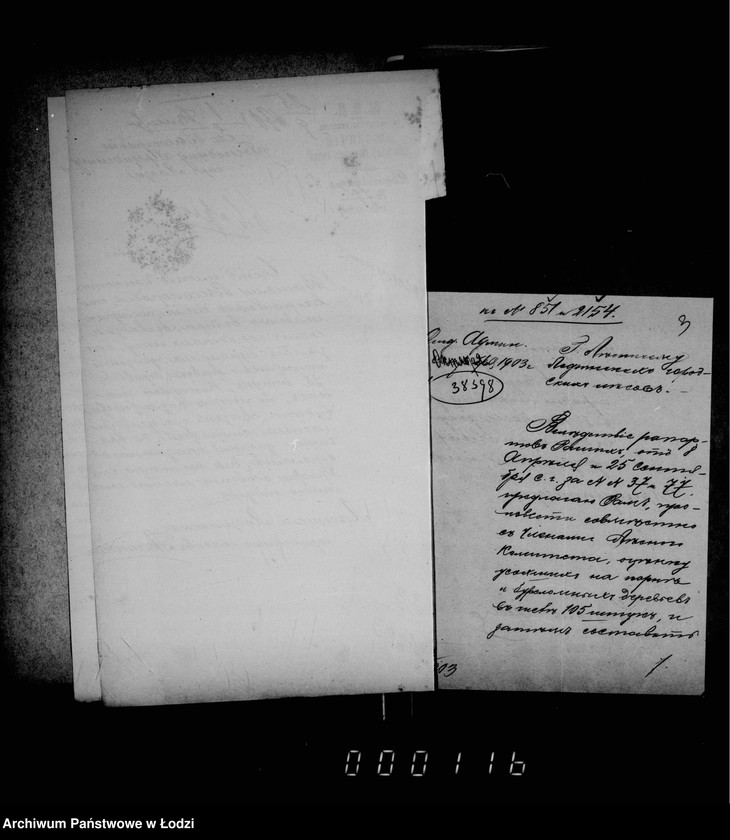 къ № 851 и 2154.
3
Админ.
1903 г.
38598
Г. Лѣсничему
Лодзинскихъ город-
скихъ лѣсовъ.
Вслѣдствіе рапор-
товъ Вашихъ, отъ 8
Апрѣля и 25 Сентя-
бря с. г. за № № 37 и 77.
предлагаю Вамъ, про-
извести совмѣстно
съ Членами Лѣсного
Комитета, оцѣнку
усохшихъ на корнѣ
и буреломныхъ деревьевъ
въ числѣ 105 штукъ, и
затѣмъ составить
03
000116
Archiwum Państwowe w Łodzi